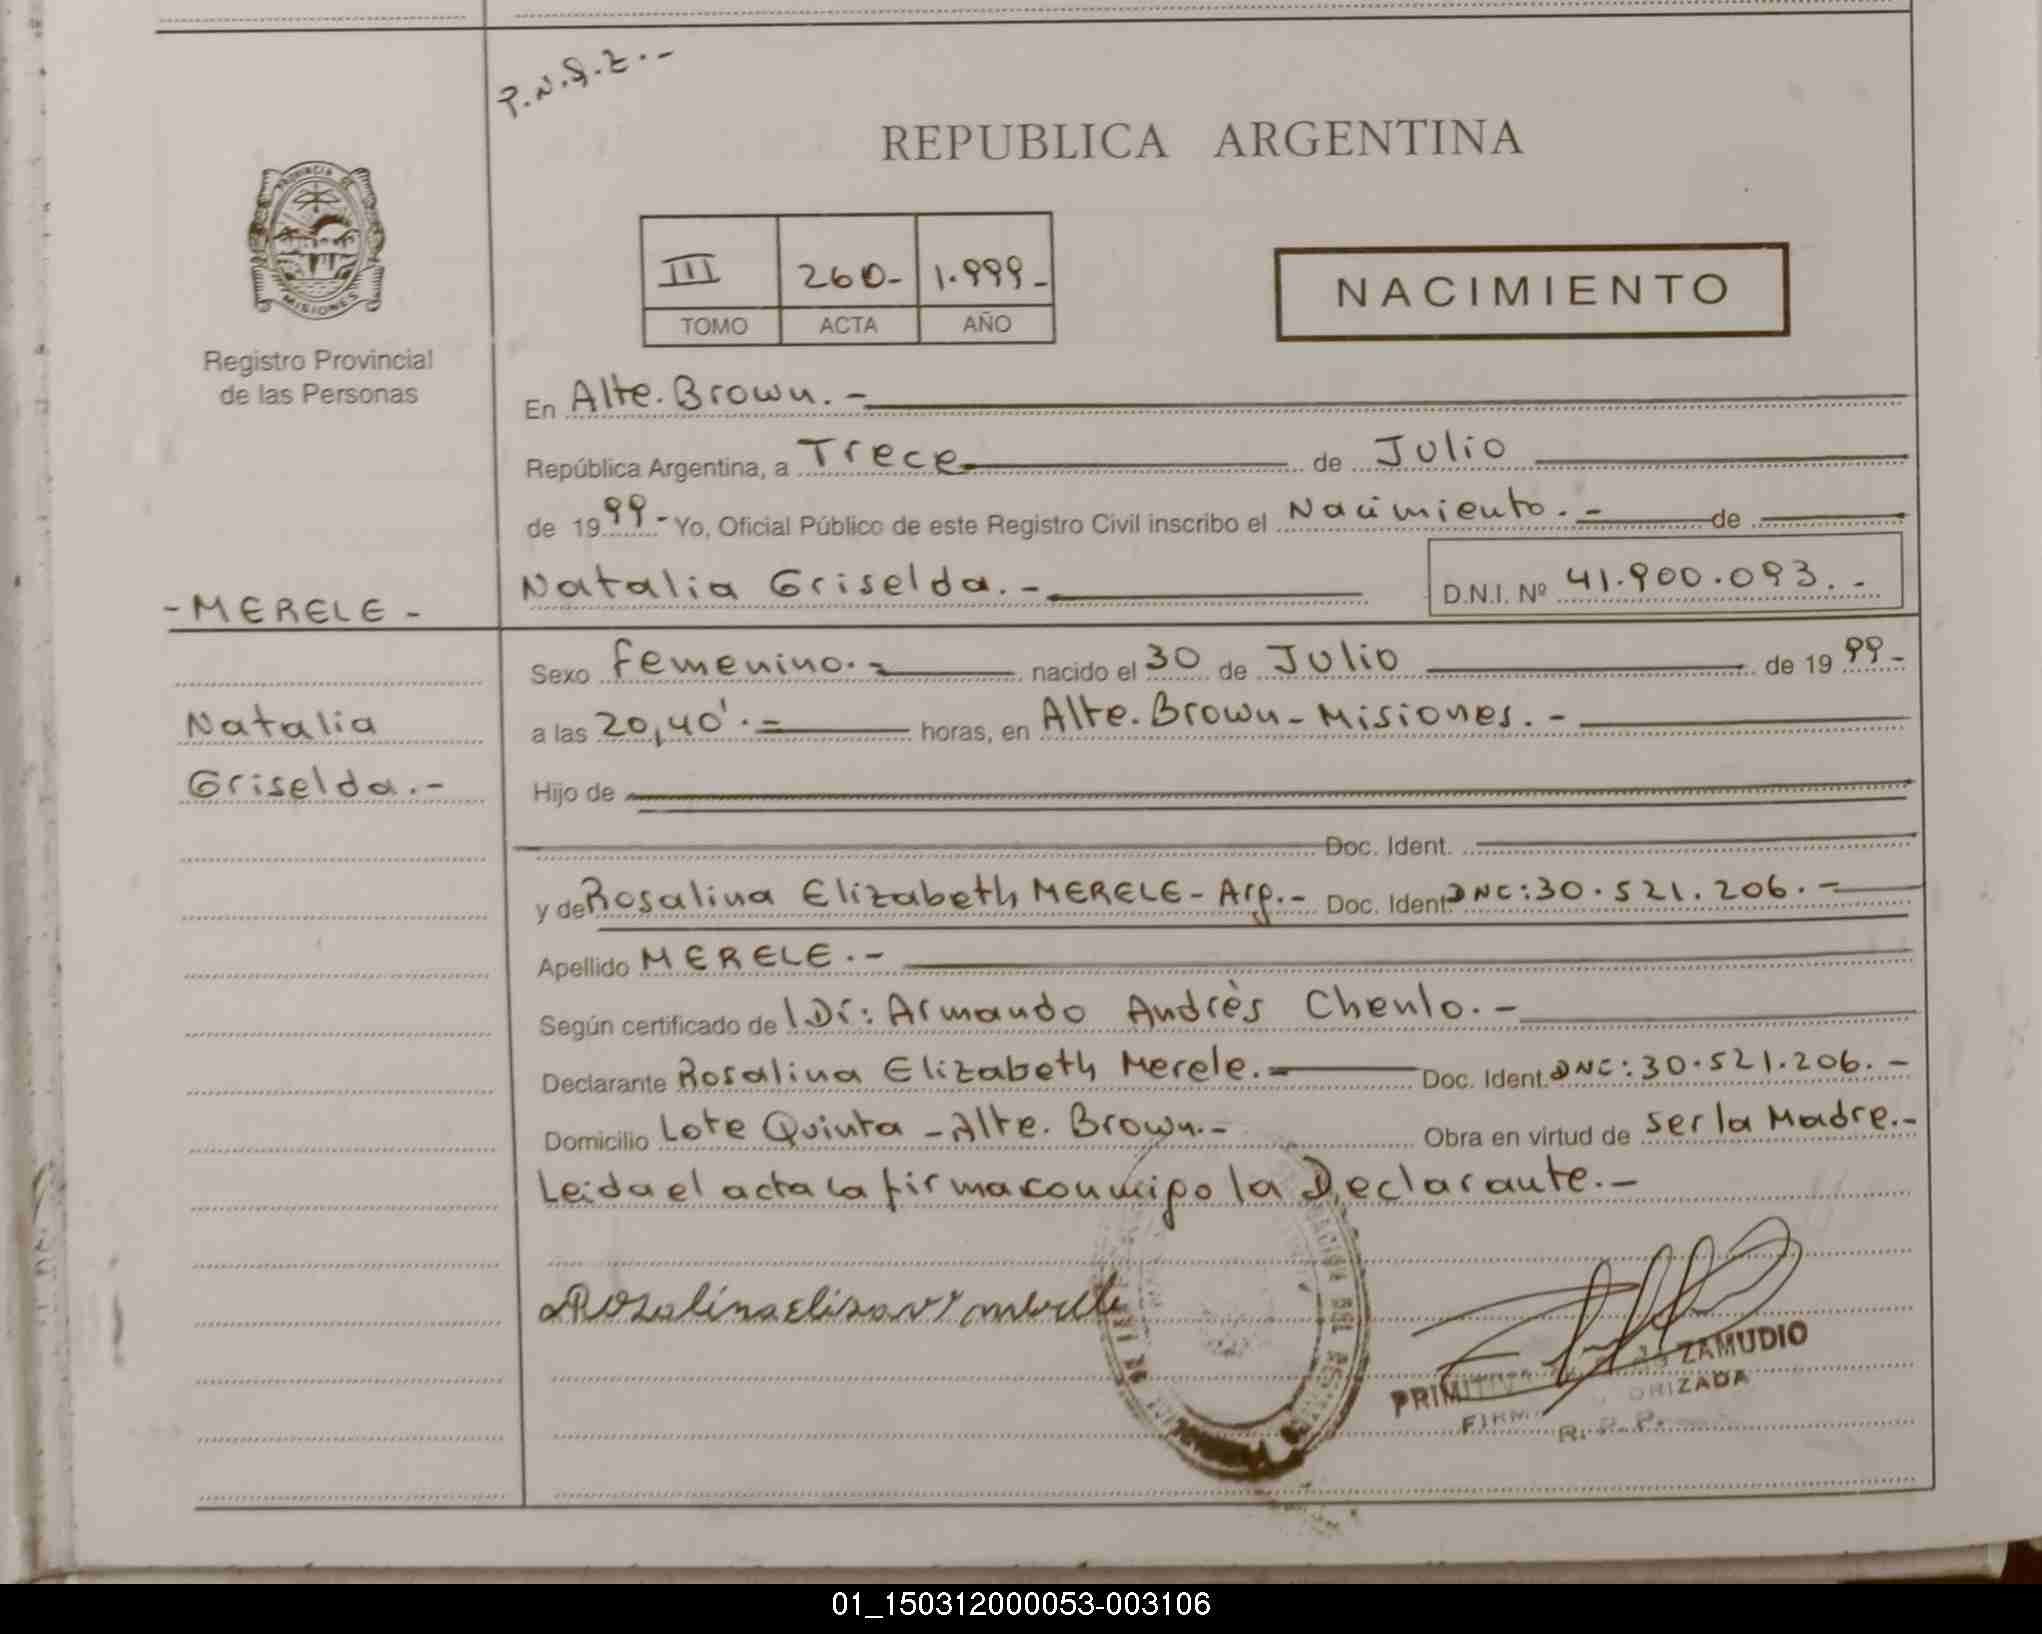 P.N.Q.Z.-
REPUBLICA ARGENTINA
PROVINCIA DE
MISIONES
Registro Provincial
de las Personas
III 260- 1.999-
TOMO ACTA AÑO
NACIMIENTO
En Alte. Brown.-
República Argentina, a Trece de Julio
de 1999- Yo, Oficial Público de este Registro Civil inscribo el Nacimiento.- de
Natalia Griselda.- D.N.I. Nº 41.900.093.-
-MERELE-
Natalia
Griselda.-
Sexo femenino.- nacido el 30 de Julio de 1999-
a las 20,40'.= horas, en Alte. Brown-Misiones.-
Hijo de
Doc. Ident.
y de Rosalina Elizabeth MERELE-Arg.- Doc. Ident. DNC:30.521.206.-
Apellido MERELE.-
Según certificado de l Dr: Armando Andrès Chenlo.-
Declarante Rosalina Elizabeth Merele.= Doc. Ident. DNC:30.521.206.-
Domicilio Lote Quinta -Alte. Brown.- Obra en virtud de ser la Madre.-
Leida el acta la firma conmigo la Declarante.-
ZAMUDIO
R. P. P.
01_150312000053-003106